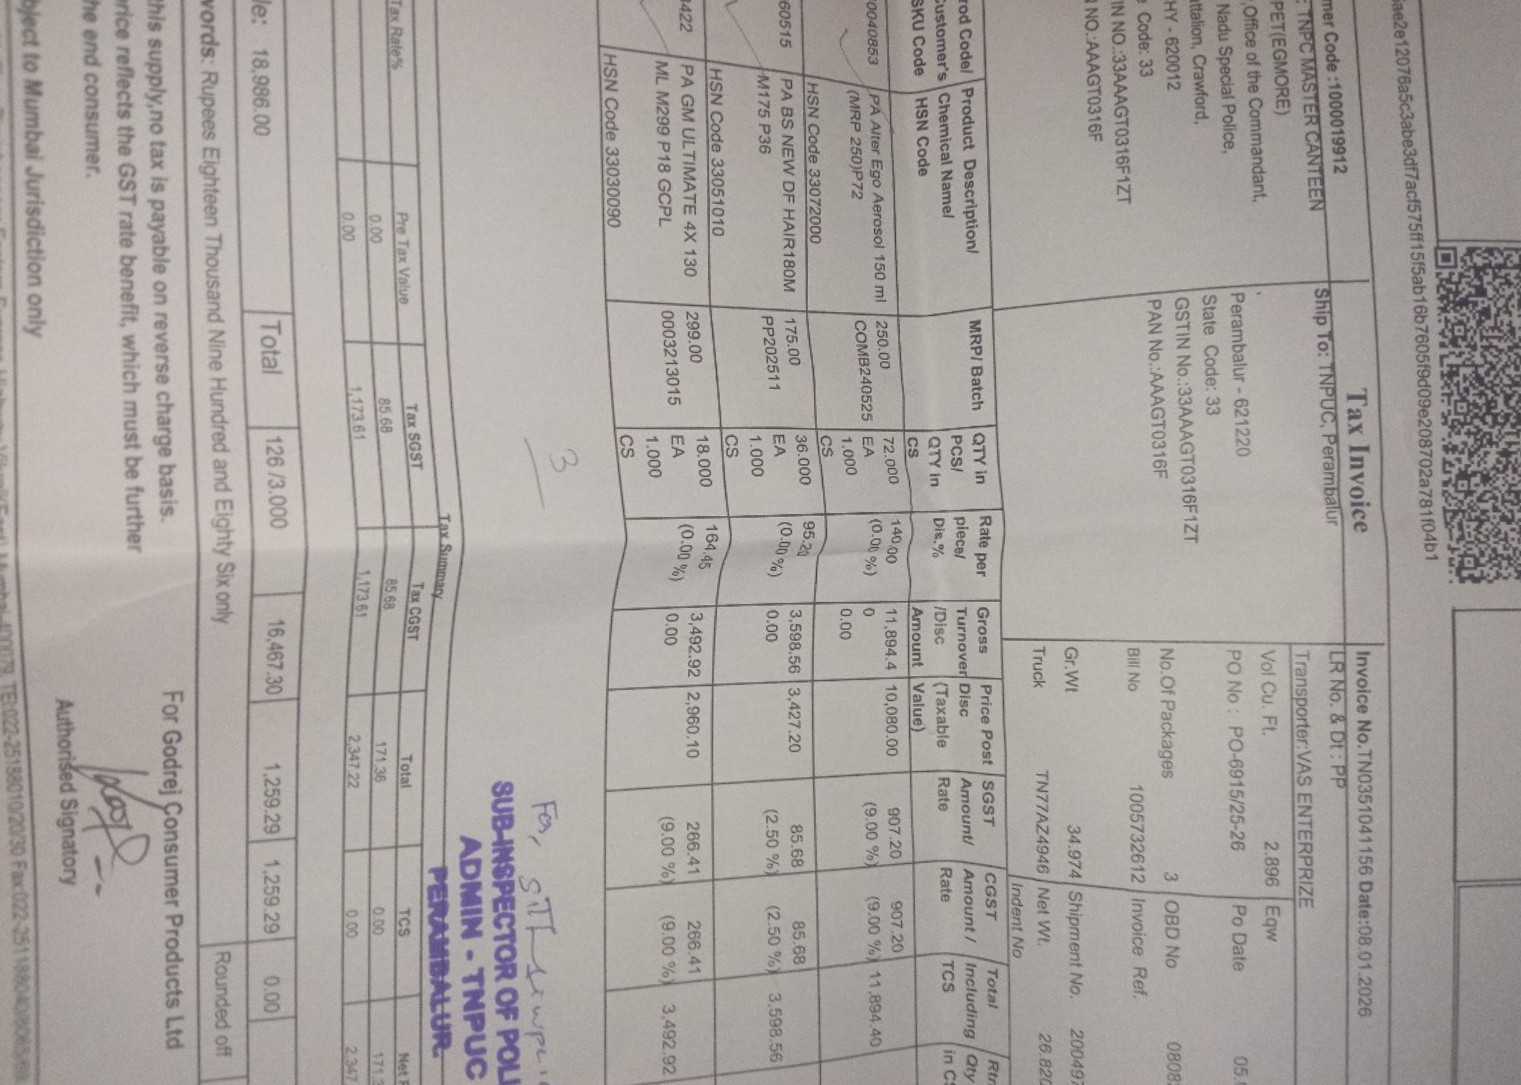 6ae2e12076a5c3abe3df7acf575ff15f5ab16b7605f9d09e208702a781f04b1
Tax Invoice
mer Code :1000019912
: TNPC MASTER CANTEEN
PET(EGMORE)
,Office of the Commandant,
Nadu Special Police,
ttalion, Crawford,
HY - 620012
e Code: 33
IN NO.:33AAAGT0316F1ZT
N NO.:AAAGT0316F
Ship To: TNPUC, Perambalur
,
Perambalur - 621220
State Code: 33
GSTIN No.:33AAAGT0316F1ZT
PAN No.:AAAGT0316F
Invoice No.TN0351041156 Date:08.01.2026
LR No. & Dt : PP
Transporter:VAS ENTERPRIZE
Vol Cu. Ft. 2.896 Eqw
PO No : PO-6915/25-26 Po Date 05.
No.Of Packages 3 OBD No 0808
Bill No 1005732612 Invoice Ref.
Gr.Wt 34.974 Shipment No. 200497
Truck TN77AZ4946 Net Wt. 26.820
Indent No
rod Code/ Product Description/ MRP/ Batch QTY in Rate per Gross Price Post SGST CGST Total Rtn
Customer's Chemical Name/ PCS/ piece/ Turnover Disc Amount/ Amount / Including Qty
SKU Code HSN Code QTY in Dis.% /Disc (Taxable Rate Rate TCS in CS
CS Amount Value)
70040853 PA Alter Ego Aerosol 150 ml 250.00 72.000 140.00 11,894.4 10,080.00 907.20 907.20 11,894.40
(MRP 250)P72 COMB240525 EA (0.00 %) 0 (9.00 %) (9.00 %)
1.000 0.00
HSN Code 33072000 CS
60515 PA BS NEW DF HAIR180M 175.00 36.000 95.20 3,598.56 3,427.20 85.68 85.68 3,598.56
M175 P36 PP202511 EA (0.00 %) 0.00 (2.50 %) (2.50 %)
1.000
HSN Code 33051010 CS
0422 PA GM ULTIMATE 4X 130 299.00 18.000 164.45 3,492.92 2,960.10 266.41 266.41 3,492.92
ML M299 P18 GCPL 0003213015 EA (0.00 %) 0.00 (9.00 %) (9.00 %)
1.000
HSN Code 33030090 CS
3
For,
SUB-INSPECTOR OF POLI
ADMIN - TNPUC
PERAMBALUR.
Tax Summary
Tax Rate% Pre Tax Value Tax SGST Tax CGST Total TCS Net
0.00 85.68 85.68 171.36 0.00 171.3
0.00 1,173.61 1,173.61 2,347.22 0.00 2,347
le: 18,986.00 Total 126 /3.000 16,467.30 1,259.29 1,259.29 0.00
words: Rupees Eighteen Thousand Nine Hundred and Eighty Six only Rounded off
this supply,no tax is payable on reverse charge basis.
rice reflects the GST rate benefit, which must be further
he end consumer.
For Godrej Consumer Products Ltd
Authorised Signatory
bject to Mumbai Jurisdiction only